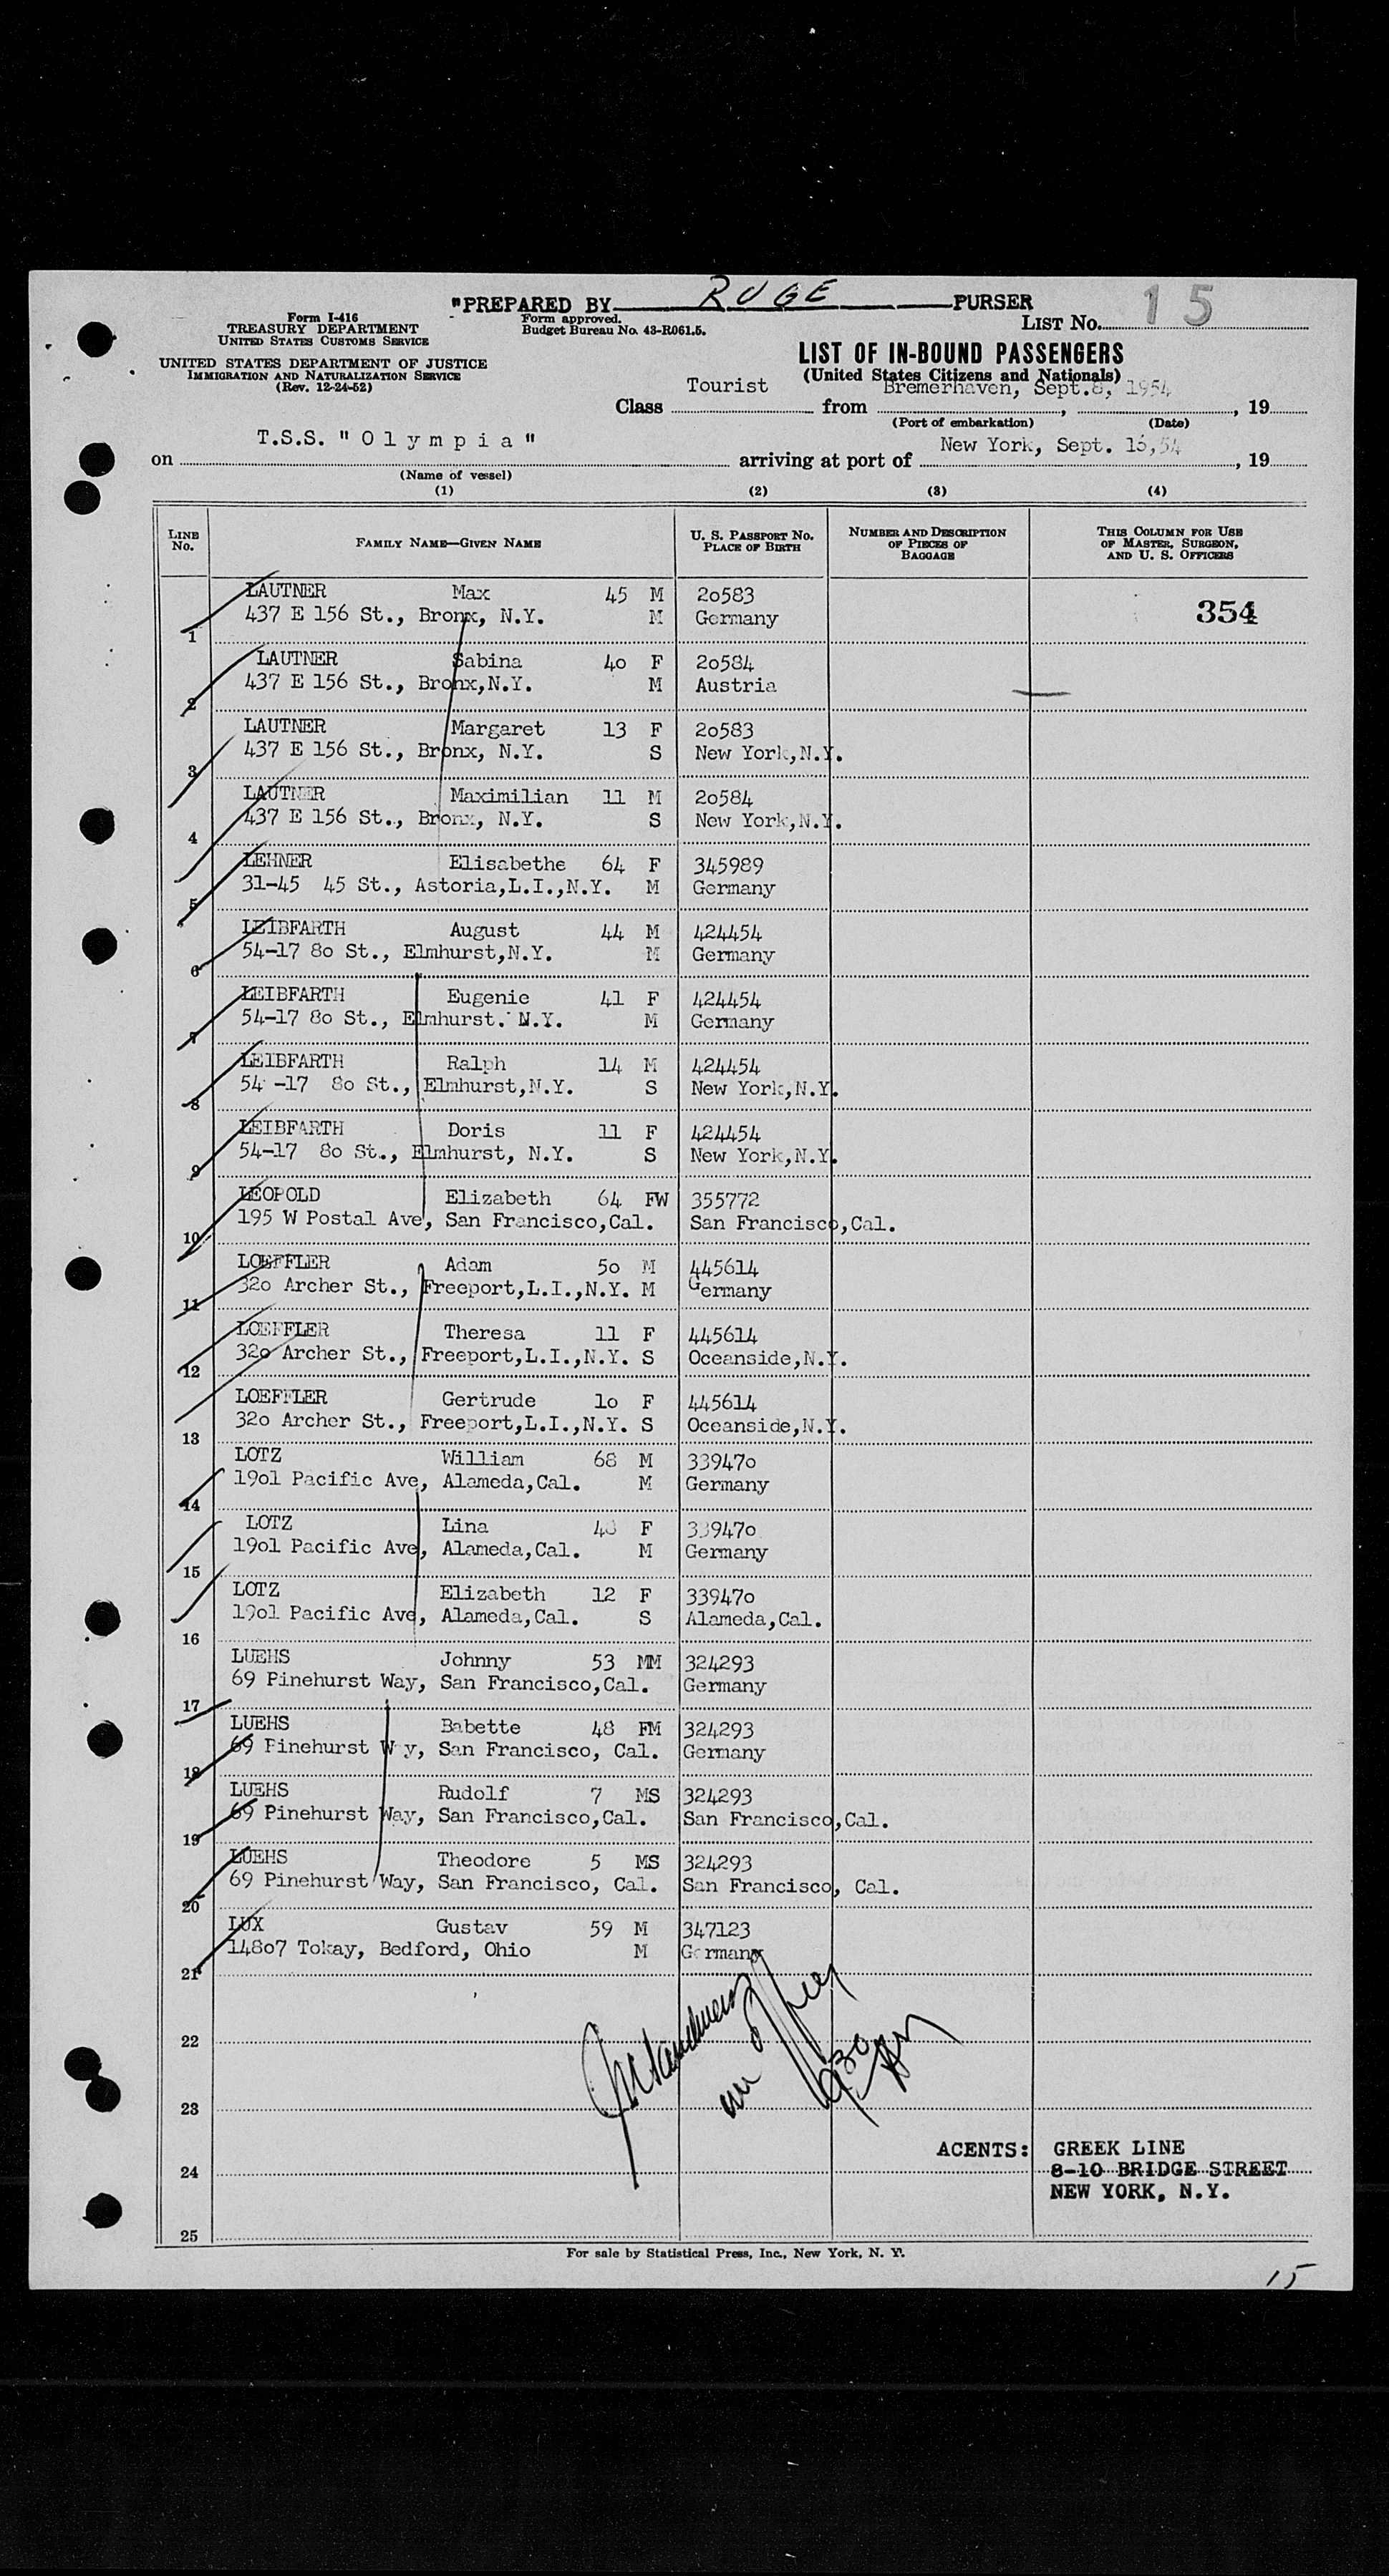 "PREPARED BY RUGE PURSER
Form I-416
TREASURY DEPARTMENT
UNITED STATES CUSTOMS SERVICE
Form approved.
Budget Bureau No. 43-R061.5.
LIST No. 15
UNITED STATES DEPARTMENT OF JUSTICE
IMMIGRATION AND NATURALIZATION SERVICE
(Rev. 12-24-52)
LIST OF IN-BOUND PASSENGERS
(United States Citizens and Nationals)
Class Tourist from Bremerhaven, Sept.8, 1954, 19
(Port of embarkation) (Date)
on T.S.S. "Olympia" arriving at port of New York, Sept. 16,54, 19
(Name of vessel)
(1) (2) (3) (4)
LINE No. FAMILY NAME—GIVEN NAME U. S. PASSPORT NO. PLACE OF BIRTH NUMBER AND DESCRIPTION OF PIECES OF BAGGAGE THIS COLUMN FOR USE OF MASTER, SURGEON, AND U. S. OFFICERS
LAUTNER Max 45 M 20583
354
1 437 E 156 St., Bronx, N.Y. M Germany
LAUTNER Sabina 40 F 20584
2 437 E 156 St., Bronx,N.Y. M Austria
LAUTNER Margaret 13 F 20583
3 437 E 156 St., Bronx, N.Y. S New York,N.Y.
LAUTNER Maximilian 11 M 20584
4 437 E 156 St., Bronx, N.Y. S New York,N.Y.
LEHNER Elisabethe 64 F 345989
5 31-45 45 St., Astoria,L.I.,N.Y. M Germany
LEIBFARTH August 44 M 424454
6 54-17 80 St., Elmhurst,N.Y. M Germany
LEIBFARTH Eugenie 41 F 424454
7 54-17 80 St., Elmhurst. N.Y. M Germany
LEIBFARTH Ralph 14 M 424454
8 54 -17 80 St., Elmhurst,N.Y. S New York,N.Y.
LEIBFARTH Doris 11 F 424454
9 54-17 80 St., Elmhurst, N.Y. S New York,N.Y.
LEOPOLD Elizabeth 64 FW 355772
10 195 W Postal Ave, San Francisco,Cal. San Francisco,Cal.
LOEFFLER Adam 50 M 445614
11 320 Archer St., Freeport,L.I.,N.Y. M Germany
LOEFFLER Theresa 11 F 445614
12 320 Archer St., Freeport,L.I.,N.Y. S Oceanside,N.Y.
LOEFFLER Gertrude 10 F 445614
13 320 Archer St., Freeport,L.I.,N.Y. S Oceanside,N.Y.
LOTZ William 68 M 339470
14 1901 Pacific Ave, Alameda,Cal. M Germany
LOTZ Lina F 339470
15 1901 Pacific Ave, Alameda,Cal. M Germany
LOTZ Elizabeth 12 F 339470
16 1901 Pacific Ave, Alameda,Cal. S Alameda,Cal.
LUEHS Johnny 53 MM 324293
17 69 Pinehurst Way, San Francisco,Cal. Germany
LUEHS Babette 48 FM 324293
18 69 Pinehurst Way, San Francisco, Cal. Germany
LUEHS Rudolf 7 MS 324293
19 69 Pinehurst Way, San Francisco,Cal. San Francisco,Cal.
LUEHS Theodore 5 MS 324293
20 69 Pinehurst Way, San Francisco, Cal. San Francisco, Cal.
LUX Gustav 59 M 347123
21 14807 Tokay, Bedford, Ohio M Germany
22
23
ACENTS: GREEK LINE
24 8-10 BRIDGE STREET
NEW YORK, N.Y.
25
For sale by Statistical Press, Inc., New York, N. Y.
15